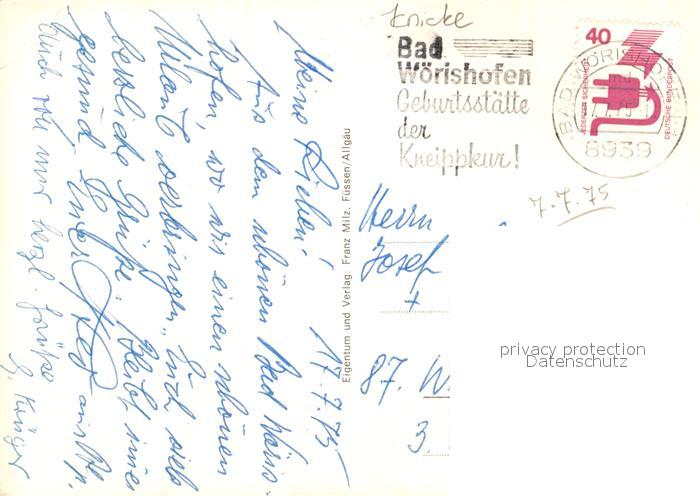 Knicke
Bad
Wörishofen
Geburtsstätte
der
Kneippkur!
40
JEDERZEIT SICHERHEIT
DEUTSCHE BUNDESPOST
BAD WÖRISHOFEN 1
8939
7.7.75
17.7.75
Meine Lieben!
Aus dem schönen Bad Wöris-
hofen, wo wir einen schönen
Urlaub verbringen, Euch viele
herzliche Grüße. Bleibt immer
gesund Euer
Auch von mir herzl. Grüße
Eigentum und Verlag: Franz Milz, Füssen/Allgäu
Herrn
Josef
+
87. W
3.
privacy protection
Datenschutz